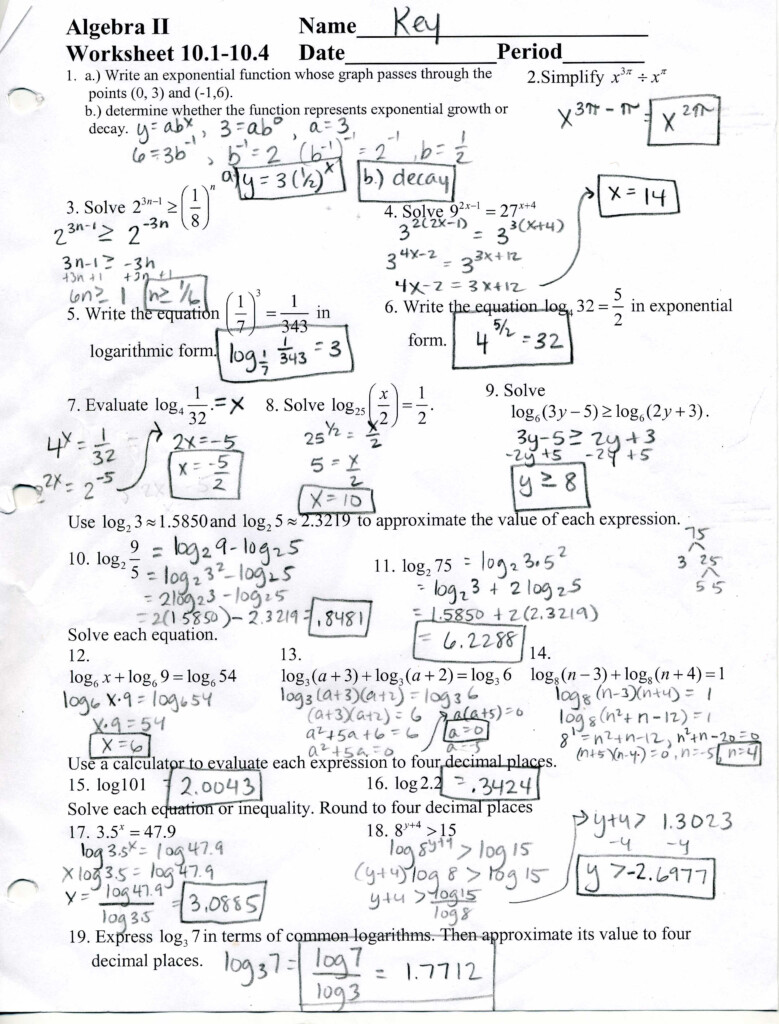 Algebra II Name Key
Worksheet 10.1-10.4 Date Period
1. a.) Write an exponential function whose graph passes through the
points (0, 3) and (-1,6).
b.) determine whether the function represents exponential growth or
decay. y=abˣ, 3=ab⁰, a=3
6=3b⁻¹, b⁻¹=2 (b⁻¹)⁻¹=2⁻¹, b=1/2
a) y=3(1/2)ˣ b.) decay
2.Simplify x^{3π} ÷ x^π
x^{3π-π} = x^{2π}
3. Solve 2^{3n-1} ≥ (1/8)^n
2^{3n-1} ≥ 2^{-3n}
3n-1 ≥ -3n
+3n +1 +3n +1
6n ≥ 1 n ≥ 1/6
4. Solve 9^{2x-1} = 27^{x+4}
3^{2(2x-1)} = 3^{3(x+4)}
3^{4x-2} = 3^{3x+12}
4x-2 = 3x+12
x=14
5. Write the equation (1/7)³ = 1/343 in
logarithmic form. log_{1/7} 1/343 = 3
6. Write the equation log₄ 32 = 5/2 in exponential
form. 4^{5/2} = 32
7. Evaluate log₄ 1/32. = x
4ˣ = 1/32
2^{2x} = 2⁻⁵
2x = -5
x = -5/2
8. Solve log₂₅ (x/2) = 1/2.
25^{1/2} = x/2
5 = x/2
x=10
9. Solve
log₆(3y−5) ≥ log₆(2y+3).
3y-5 ≥ 2y+3
-2y+5 -2y +5
y ≥ 8
Use log₂ 3 ≈ 1.5850 and log₂ 5 ≈ 2.3219 to approximate the value of each expression.
10. log₂ 9/5 = log₂9 - log₂5
= log₂3² - log₂5
= 2log₂3 - log₂5
= 2(1.5850) - 2.3219 = .8481
11. log₂ 75 = log₂ 3·5²
= log₂3 + 2log₂5
= 1.5850 + 2(2.3219)
= 6.2288
75
3 25
5 5
Solve each equation.
12.
log₆ x + log₆ 9 = log₆ 54
log₆ x·9 = log₆54
x·9 = 54
x=6
13.
log₃(a+3) + log₃(a+2) = log₃ 6
log₃(a+3)(a+2) = log₃6
(a+3)(a+2) = 6
a²+5a+6 = 6
a²+5a=0
a(a+5)=0
a=0
a=-5
14.
log₈(n−3) + log₈(n+4) = 1
log₈(n-3)(n+4) = 1
log₈(n²+n-12) = 1
8¹=n²+n-12, n²+n-20=0
(n+5)(n-4)=0, n=-5, n=4
Use a calculator to evaluate each expression to four decimal places.
15. log101 = 2.0043
16. log2.2 = .3424
Solve each equation or inequality. Round to four decimal places
17. 3.5ˣ = 47.9
log 3.5ˣ = log 47.9
x log 3.5 = log 47.9
x = log 47.9/log 3.5 = 3.0885
18. 8^{y+4} > 15
log 8^{y+4} > log 15
(y+4) log 8 > log 15
y+4 > log 15/log 8
y+4 > 1.3023
-4 -4
y > -2.6977
19. Express log₃ 7 in terms of common logarithms. Then approximate its value to four
decimal places. log₃7 = log 7/log 3 = 1.7712